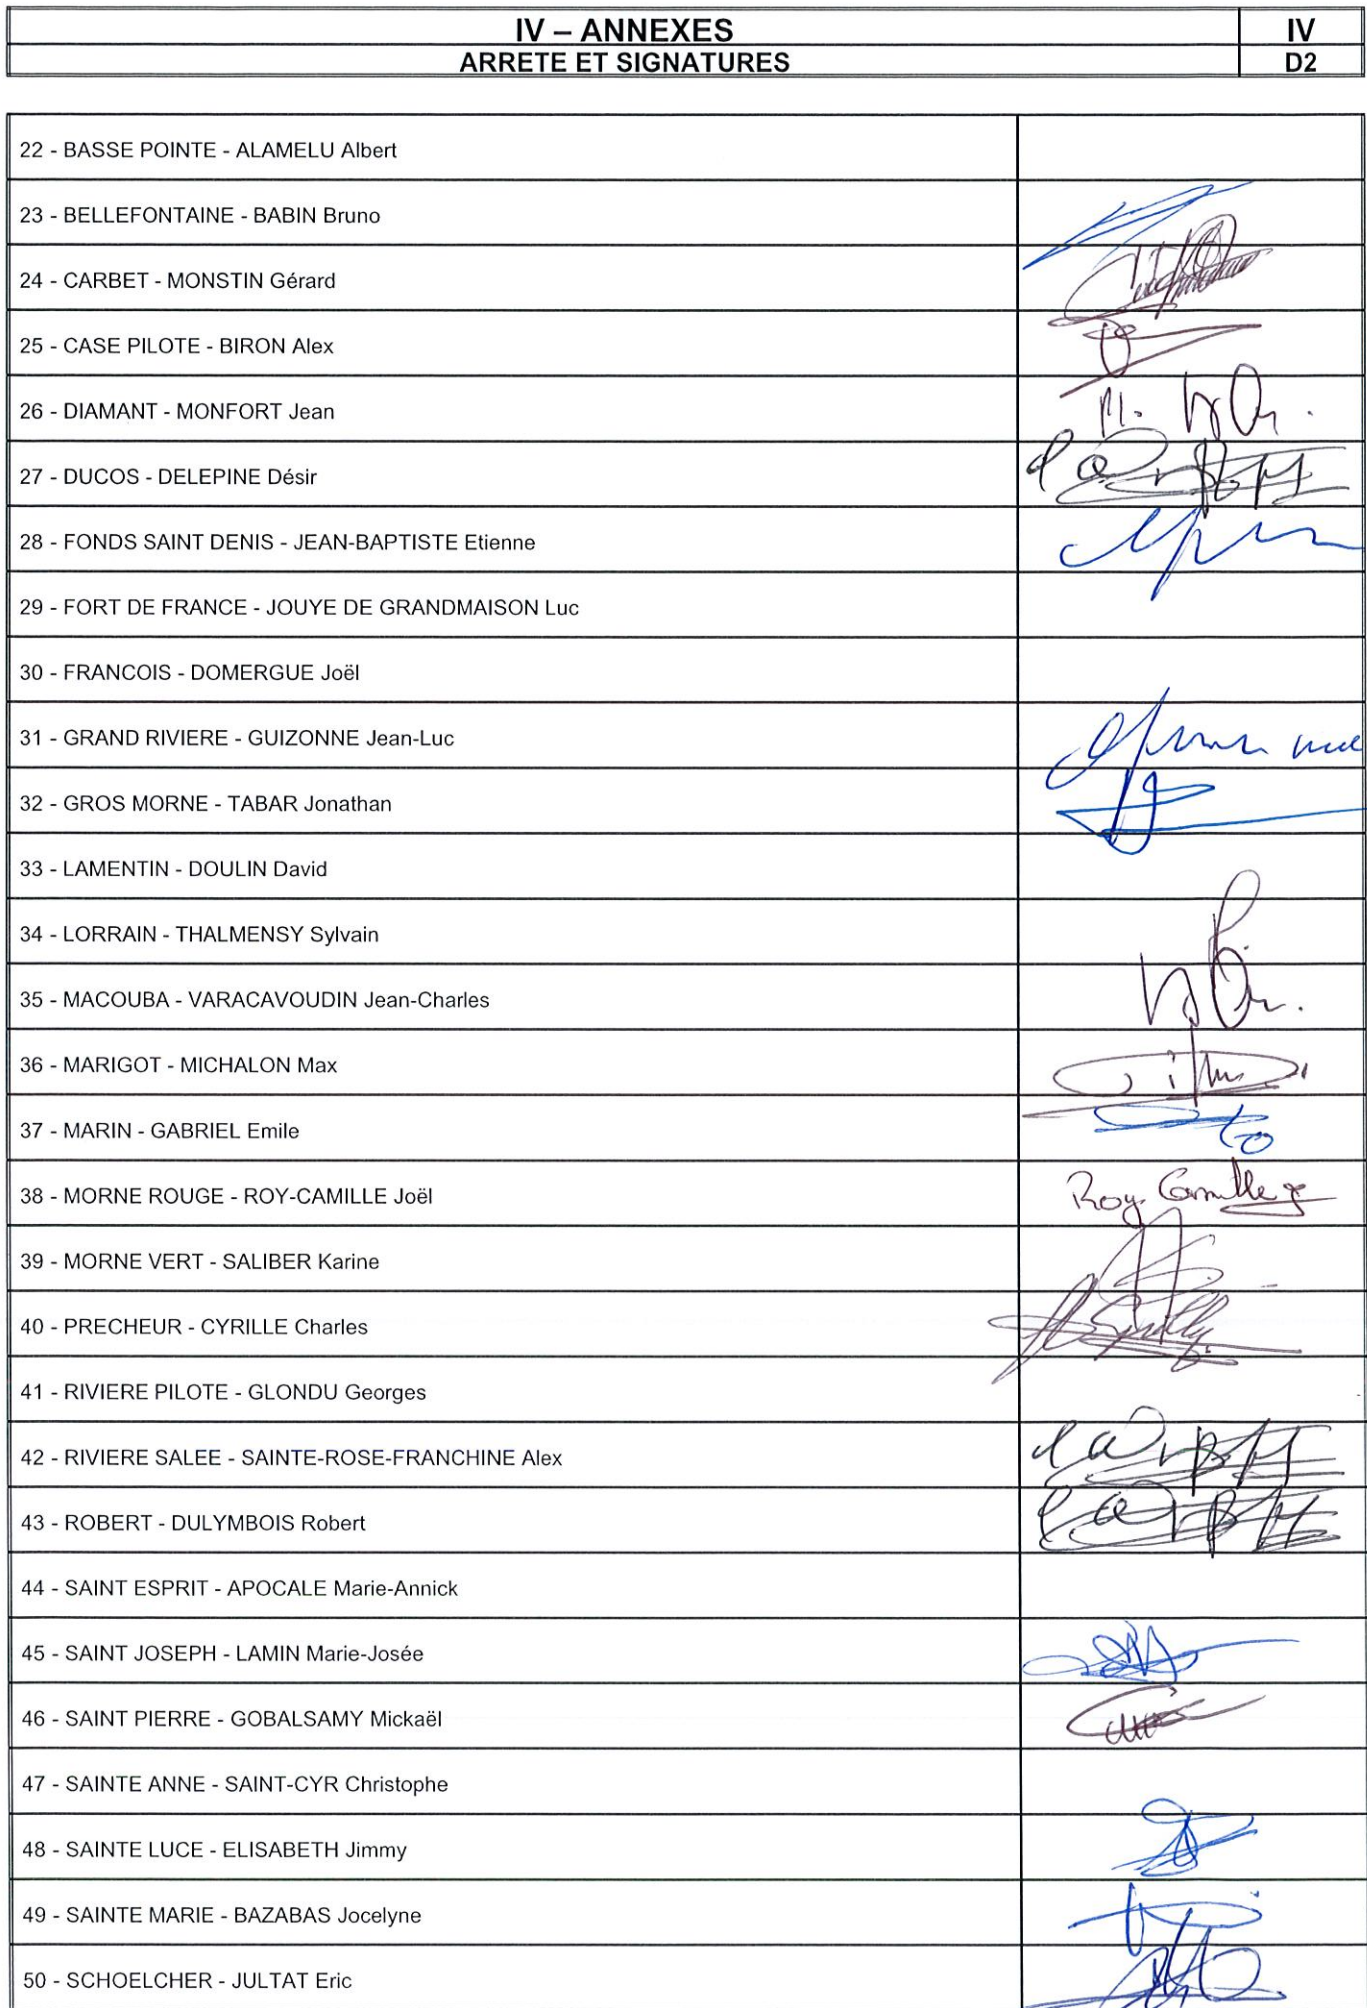 IV – ANNEXES
IV
ARRETE ET SIGNATURES
D2
22 - BASSE POINTE - ALAMELU Albert
23 - BELLEFONTAINE - BABIN Bruno
24 - CARBET - MONSTIN Gérard
25 - CASE PILOTE - BIRON Alex
26 - DIAMANT - MONFORT Jean
27 - DUCOS - DELEPINE Désir
28 - FONDS SAINT DENIS - JEAN-BAPTISTE Etienne
29 - FORT DE FRANCE - JOUYE DE GRANDMAISON Luc
30 - FRANCOIS - DOMERGUE Joël
31 - GRAND RIVIERE - GUIZONNE Jean-Luc
32 - GROS MORNE - TABAR Jonathan
33 - LAMENTIN - DOULIN David
34 - LORRAIN - THALMENSY Sylvain
35 - MACOUBA - VARACAVOUDIN Jean-Charles
36 - MARIGOT - MICHALON Max
37 - MARIN - GABRIEL Emile
38 - MORNE ROUGE - ROY-CAMILLE Joël
Roy Camille
39 - MORNE VERT - SALIBER Karine
40 - PRECHEUR - CYRILLE Charles
41 - RIVIERE PILOTE - GLONDU Georges
42 - RIVIERE SALEE - SAINTE-ROSE-FRANCHINE Alex
43 - ROBERT - DULYMBOIS Robert
44 - SAINT ESPRIT - APOCALE Marie-Annick
45 - SAINT JOSEPH - LAMIN Marie-Josée
46 - SAINT PIERRE - GOBALSAMY Mickaël
47 - SAINTE ANNE - SAINT-CYR Christophe
48 - SAINTE LUCE - ELISABETH Jimmy
49 - SAINTE MARIE - BAZABAS Jocelyne
50 - SCHOELCHER - JULTAT Eric